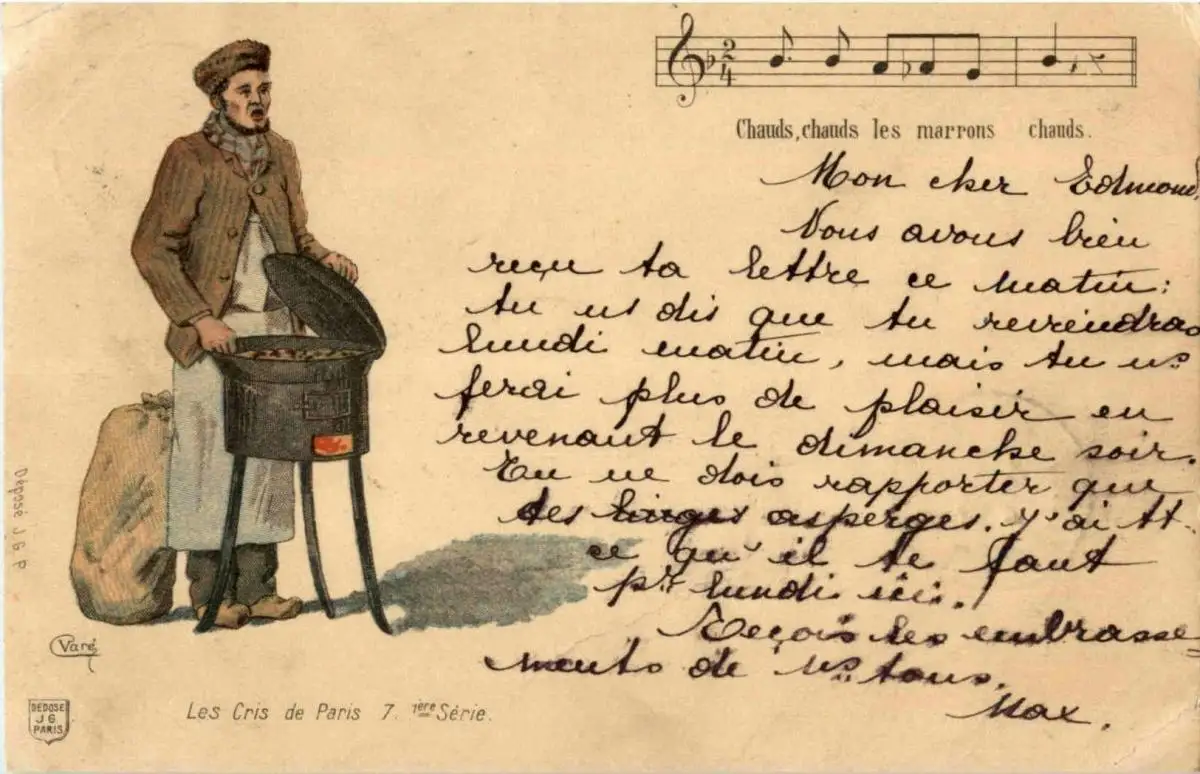 Chauds, chauds les marrons chauds.
Mon cher Edmond,
Nous avons bien
reçu ta lettre ce matin:
tu ns dis que tu reviendras
lundi matin, mais tu ns
ferai plus de plaisir en
revenant le dimanche soir.
Tu ne dois rapporter que
des asperges. J'ai tt
ce qu'il te faut
pr lundi ici.
Reçois les embrasse=
ments de ns tous.
Max.
Déposé J G P
Varé
DEPOSE
J G
PARIS
Les Cris de Paris 7. 1ère Série.